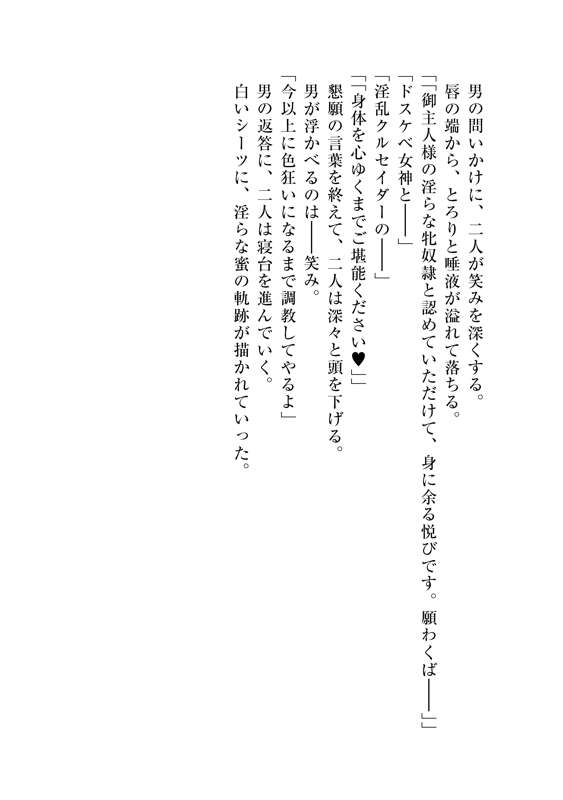 男の問いかけに、二人が笑みを深くする。
唇の端から、とろりと唾液が溢れて落ちる。
「「御主人様の淫らな牝奴隷と認めていただけて、身に余る悦びです。願わくば――」」
「ドスケベ女神と――」
「淫乱クルセイダーの――」
「「身体を心ゆくまでご堪能ください♥」」
懇願の言葉を終えて、二人は深々と頭を下げる。
男が浮かべるのは――笑み。
「今以上に色狂いになるまで調教してやるよ」
男の返答に、二人は寝台を進んでいく。
白いシーツに、淫らな蜜の軌跡が描かれていった。